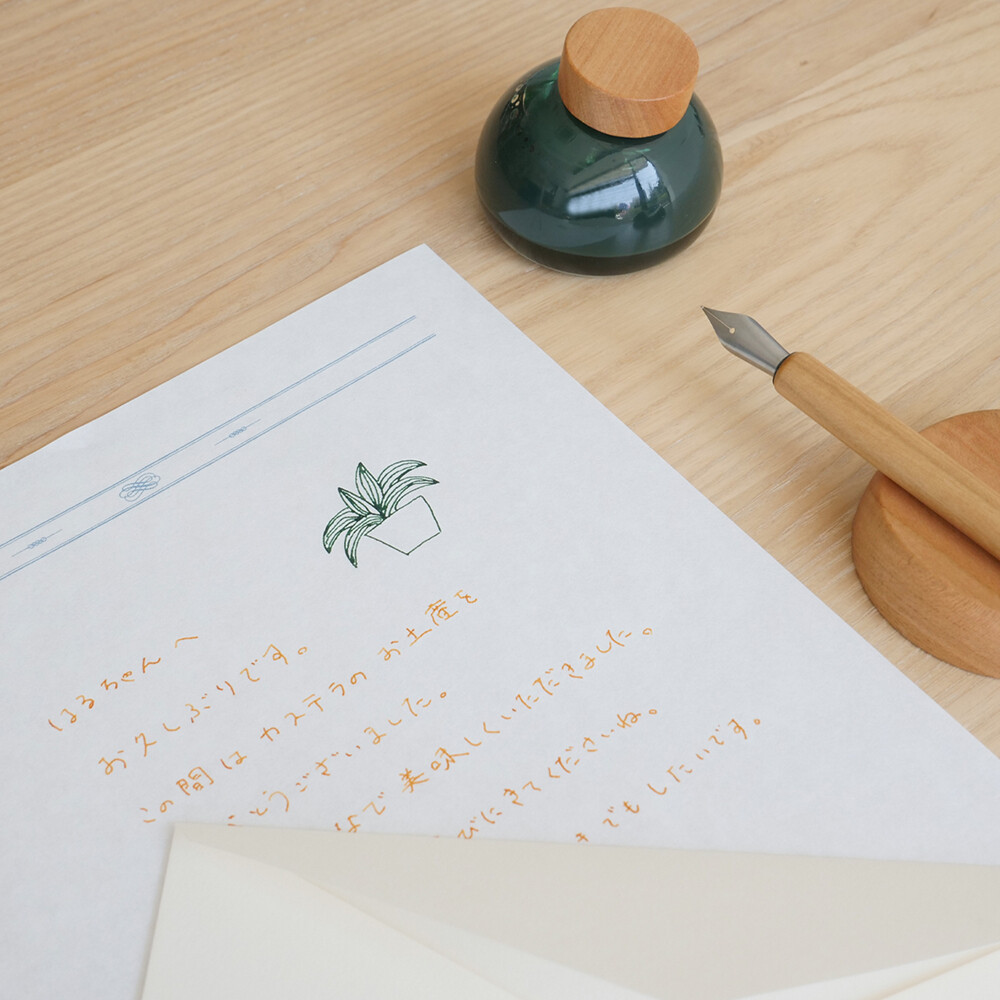 はるちゃんへ
お久しぶりです。
この間はカステラのお土産を
とうございました。
なで美味しくいただきました。
びにきてくださいね。
でもしたいです。